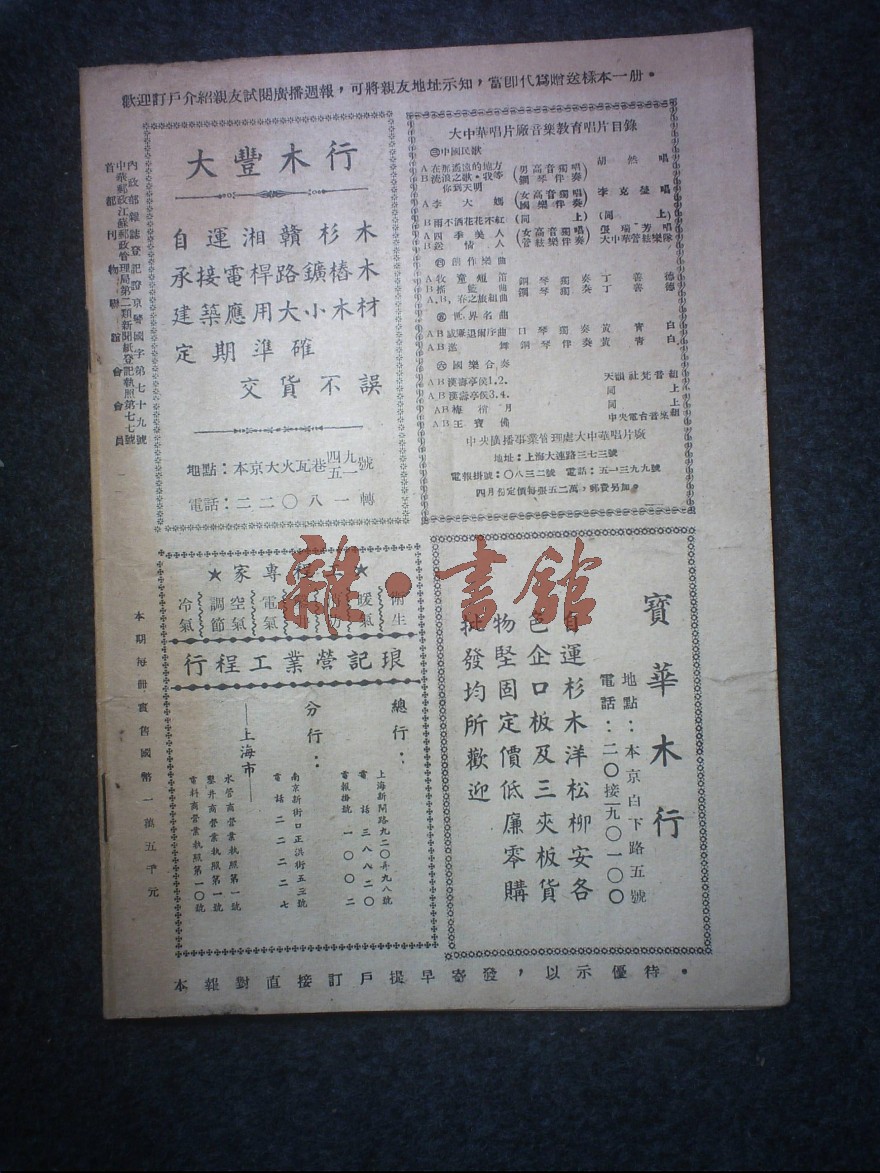 歡迎訂戶介紹親友試閱廣播週報，可將親友地址示知，當卽代爲贈送樣本一册。
內政部雜誌登記證京警國字第七十九號
中華郵政江蘇郵政管理局第二類新聞紙登記執照第七七號
首都刊物聯誼會會員
本期每冊實售國幣一萬五千元
大豐木行
自運湘贛杉木
承接電桿路鑛樁木
建築應用大小木材
定期準確
交貨不誤
地點：本京大火瓦巷四九五一號
電話：二二〇八一轉
大中華唱片廠音樂教育唱片目錄
㊂中國民歌
A在那遙遠的地方 (男高音獨唱 胡然唱
B流浪之歌・我等你到天明 鋼琴伴奏
A李大媽 (女高音獨唱 國樂伴奏 李克瑩唱
B雨不洒花花不紅 (同上) (同上)
A四季美人 (女高音獨唱 張瑞芳唱
B訟情人 管絃樂伴奏 大中華管絃樂隊
創作樂曲
A牧童短笛 鋼琴獨奏 丁善德
B搖籃曲 鋼琴獨奏 丁善德
A.B.春之旅組曲
世界名曲
AB威廉退爾序曲 口琴獨奏 黃青白
AB 舞 鋼琴伴奏 黃青白
㊅國樂合奏
AB漢壽亭侯1,2. 天韻社梵音組
AB漢壽亭侯3,4. 同上
AB 月 同上
AB王寶 中央電台音樂組
中央廣播事業管理處大中華唱片廠
地址：上海大連路三七三號
電報掛號：〇八三二號 電話：五一三九九號
四月份定價每張五二萬，郵費另加。
★ 程專家★
衞生
暖氣
電氣
空氣調節
冷氣
琅記營業工程行
總行：
上海新閘路九二〇弄九八號
電話 三八八二〇
電報掛號 一〇〇二
分行：
南京新街口正洪街五三號
電話 二二二二七
—上海市—
水管商營業執照第一號
鑿井商營業執照第一號
電料商營業執照第一〇號
寶華木行
地點：本京白下路五號
電話：二〇接一九〇一〇〇
自運杉木洋松柳安各
色企口板及三夾板貨
物堅固定價低廉零購
批發均所歡迎
本報對直接訂戶提早寄發，以示優待。
雜・書館